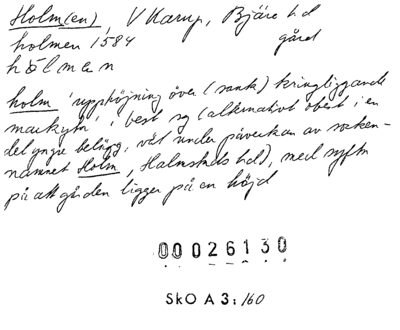 Holm(en), V Karup, Bjäre hd
holmen 1584 gård
hòlmən
holm 'upphöjning över (sank) kringliggande
markyta' i best sg (alternativt obest i en
del yngre belägg, väl under påverkan av socken-
namnet Holm, Halmstads hd), med syftn
på att gården ligger på en höjd
00026130
SkO A 3: 160